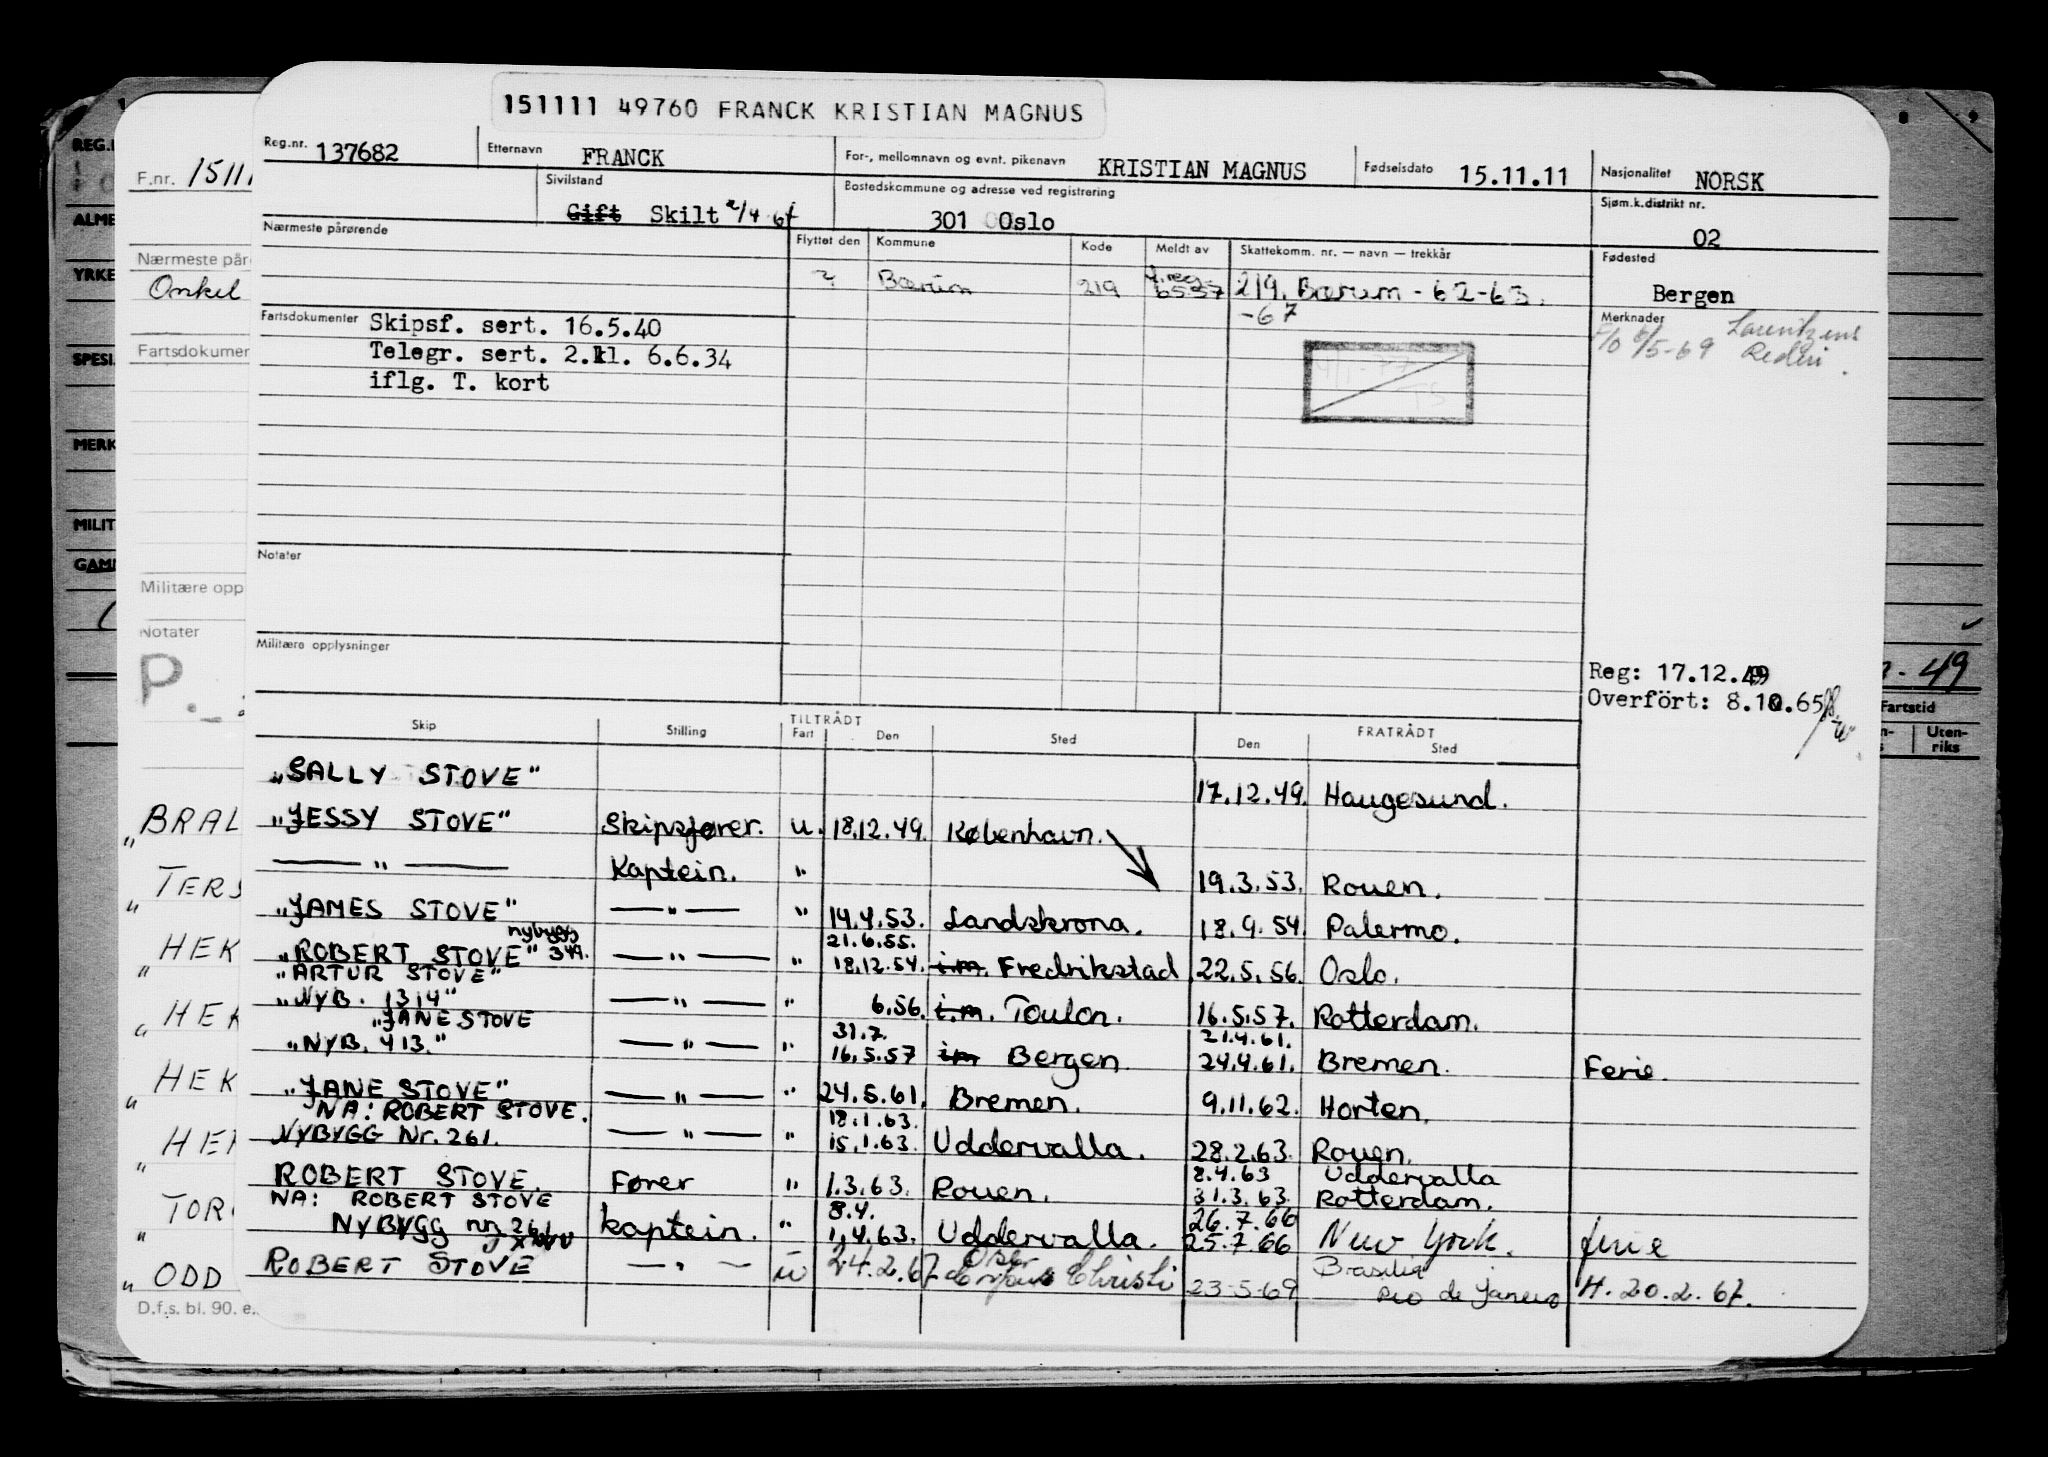 151111 49760 FRANCK KRISTIAN MAGNUS
Reg.nr. 137682 Etternavn FRANCK For-, mellomnavn og evnt. pikenavn KRISTIAN MAGNUS Fødselsdato 15.11.11 Nasjonalitet NORSK
Sivilstand Gift Skilt 2/4 67 Bostedskommune og adresse ved registrering 301 Oslo Sjøm.k.distrikt nr. 02
Nærmeste pårørende Flyttet den Kommune Kode Meldt av Skattekomm. nr. — navn — trekkår Fødested
Bærum 219 219. Bærum - 62-63. Bergen
-67
Fartsdokumenter Skipsf. sert. 16.5.40 Merknader
Telegr. sert. 2.kl. 6.6.34 /5-69 Lauritzens
iflg. T. kort Rederi.
Notater
Militære opplysninger
Reg: 17.12.49
Overfört: 8.10.65
Skip Stilling TILTRÅDT Fart Den Sted FRATRÅDT Den Sted
„SALLY STOVE" 17.12.49. Haugesund.
„JESSY STOVE" Skipsfører. u. 18.12.49. København.
— " — Kaptein. " 19.3.53. Rouen.
„JAMES STOVE" — " — " 14.4.53. Landskrona. 18.9.54. Palermo.
nybygg 21.6.55.
„ROBERT STOVE" 349. — " — " 18.12.54. i.m. Fredrikstad 22.5.56. Oslo.
"ARTUR STOVE"
"NYB. 1314" — " — " 6.56. i.m. Toulon. 16.5.57. Rotterdam.
"JANE STOVE 31.7. 21.4.61.
"NYB. 413." — " — " 16.5.57 im Bergen 24.4.61. Bremen. Ferie.
„JANE STOVE" — " — " 24.5.61. Bremen. 9.11.62. Horten.
NA: ROBERT STOVE. 18.1.63.
NYBYGG Nr. 261. — " — " 15.1.63. Uddervalla. 28.2.63. Rouen.
8.4.63 Uddervalla
ROBERT STOVE. Fører " 1.3.63. Rouen. 31.3.63. Rotterdam.
NA: ROBERT STOVE 8.4. 26.7.66
NYBYGG nr. 261 kaptein. " 1.4.63. Uddervalla. 25.7.66 New York. ferie
Oslo Brasilia
ROBERT STOVE — " — u 24.2.67 Corpus Christi 23-5-69 Rio de Janeiro H. 20.2.67.
F.nr. 15111
Nærmeste pår
Onkel
Fartsdokumen
Militære opp
Notater
P.
„BRAL
„TERS
„HEK
„HEK
„HEK
„HEK
„TOR
„ODD
D.f.s. bl. 90. e.
REG.
ALME
YRKE
SPESI
MERK
MILIT
GAM
8 9
- 49
Fartstid
Uten-
riks